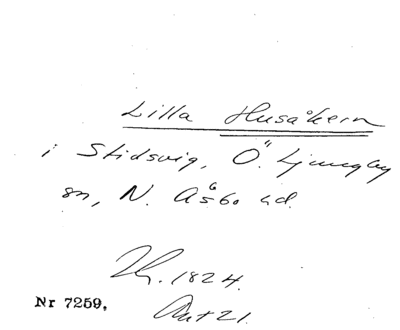 Lilla Husåkern
i Stidsvig, Ö. Ljungby
sn, N. Åsbo hd.
1824.
Nr 7259,
Akt 21.